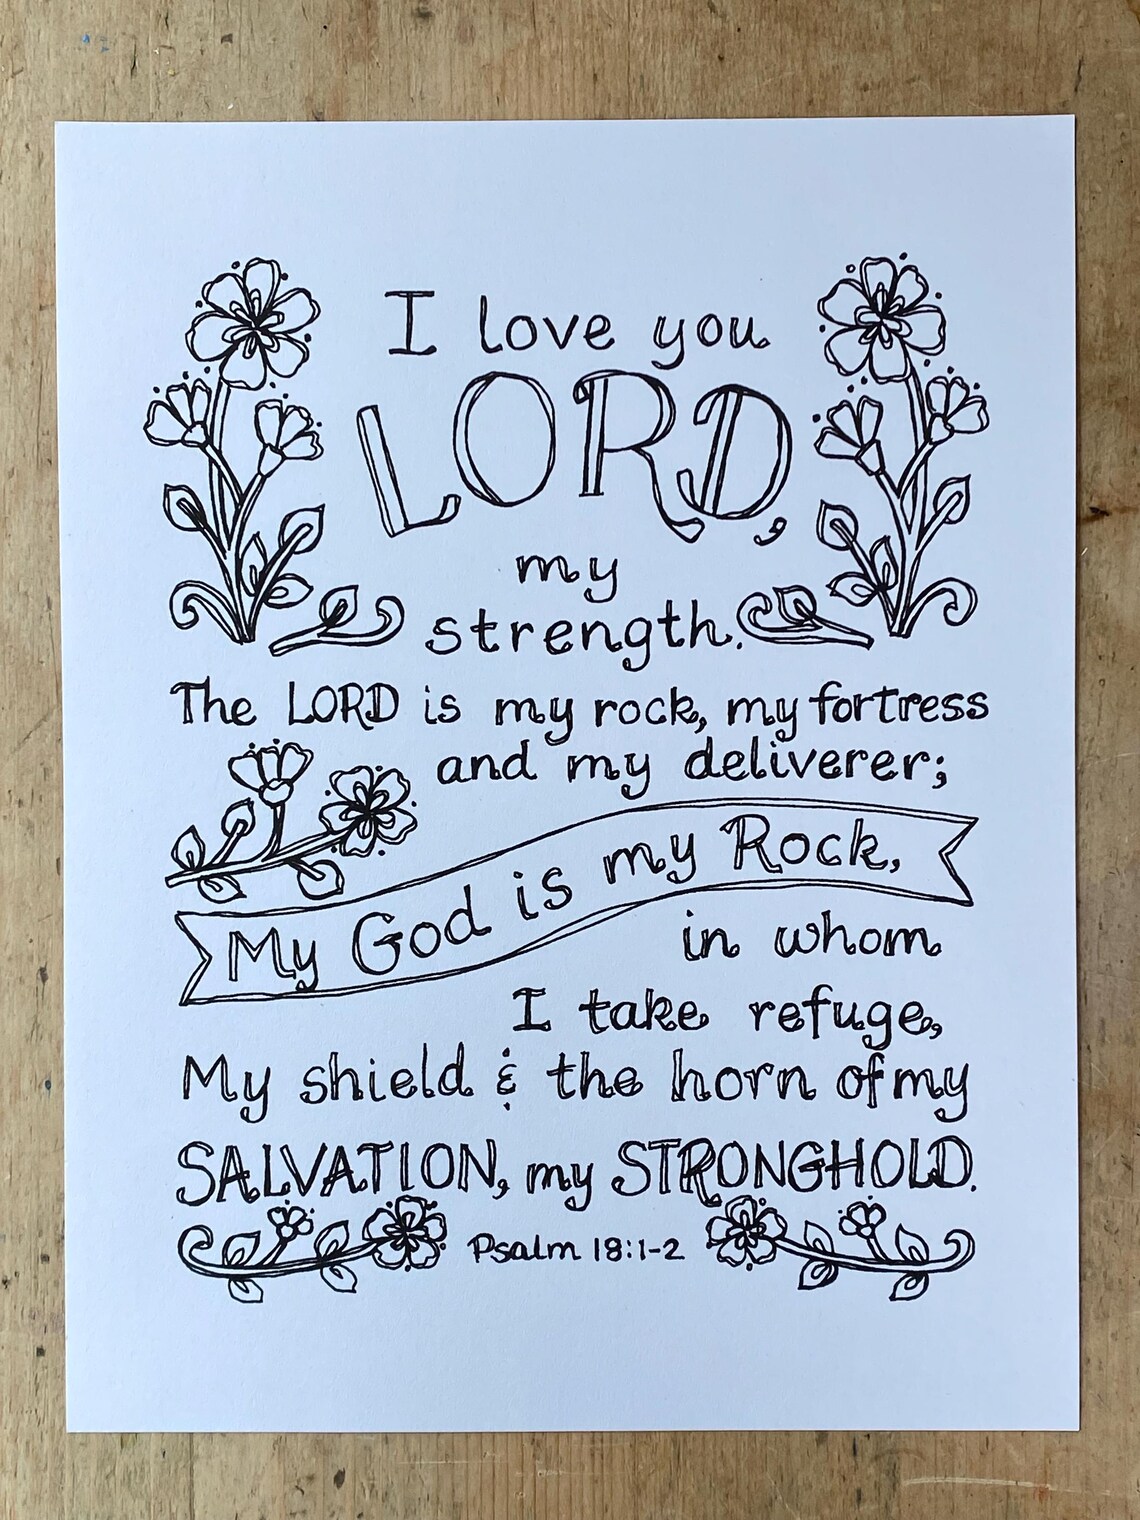 I love you
LORD,
my
strength.
The LORD is my rock, my fortress
and my deliverer;
My God is my Rock,
in whom
I take refuge,
My shield & the horn of my
SALVATION, my STRONGHOLD.
Psalm 18:1-2